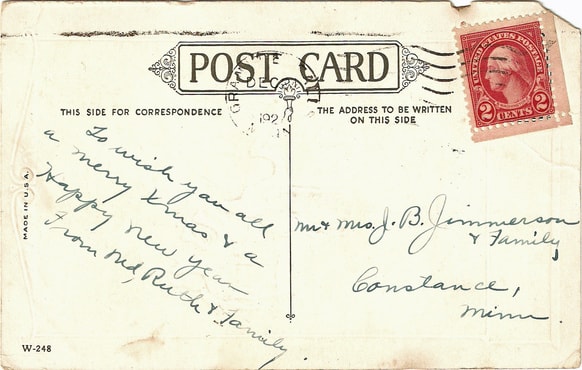 POST CARD
GRA
DEC
192
UNITED STATES POSTAGE
2 CENTS 2
THIS SIDE FOR CORRESPONDENCE
THE ADDRESS TO BE WRITTEN
ON THIS SIDE
To wish you all
a merry Xmas & a
Happy new year
From Ned, Ruth & Family.
Mr & Mrs. J. B. Jimmerson
& Family
Constance,
Minn.
MADE IN U.S.A.
W-248